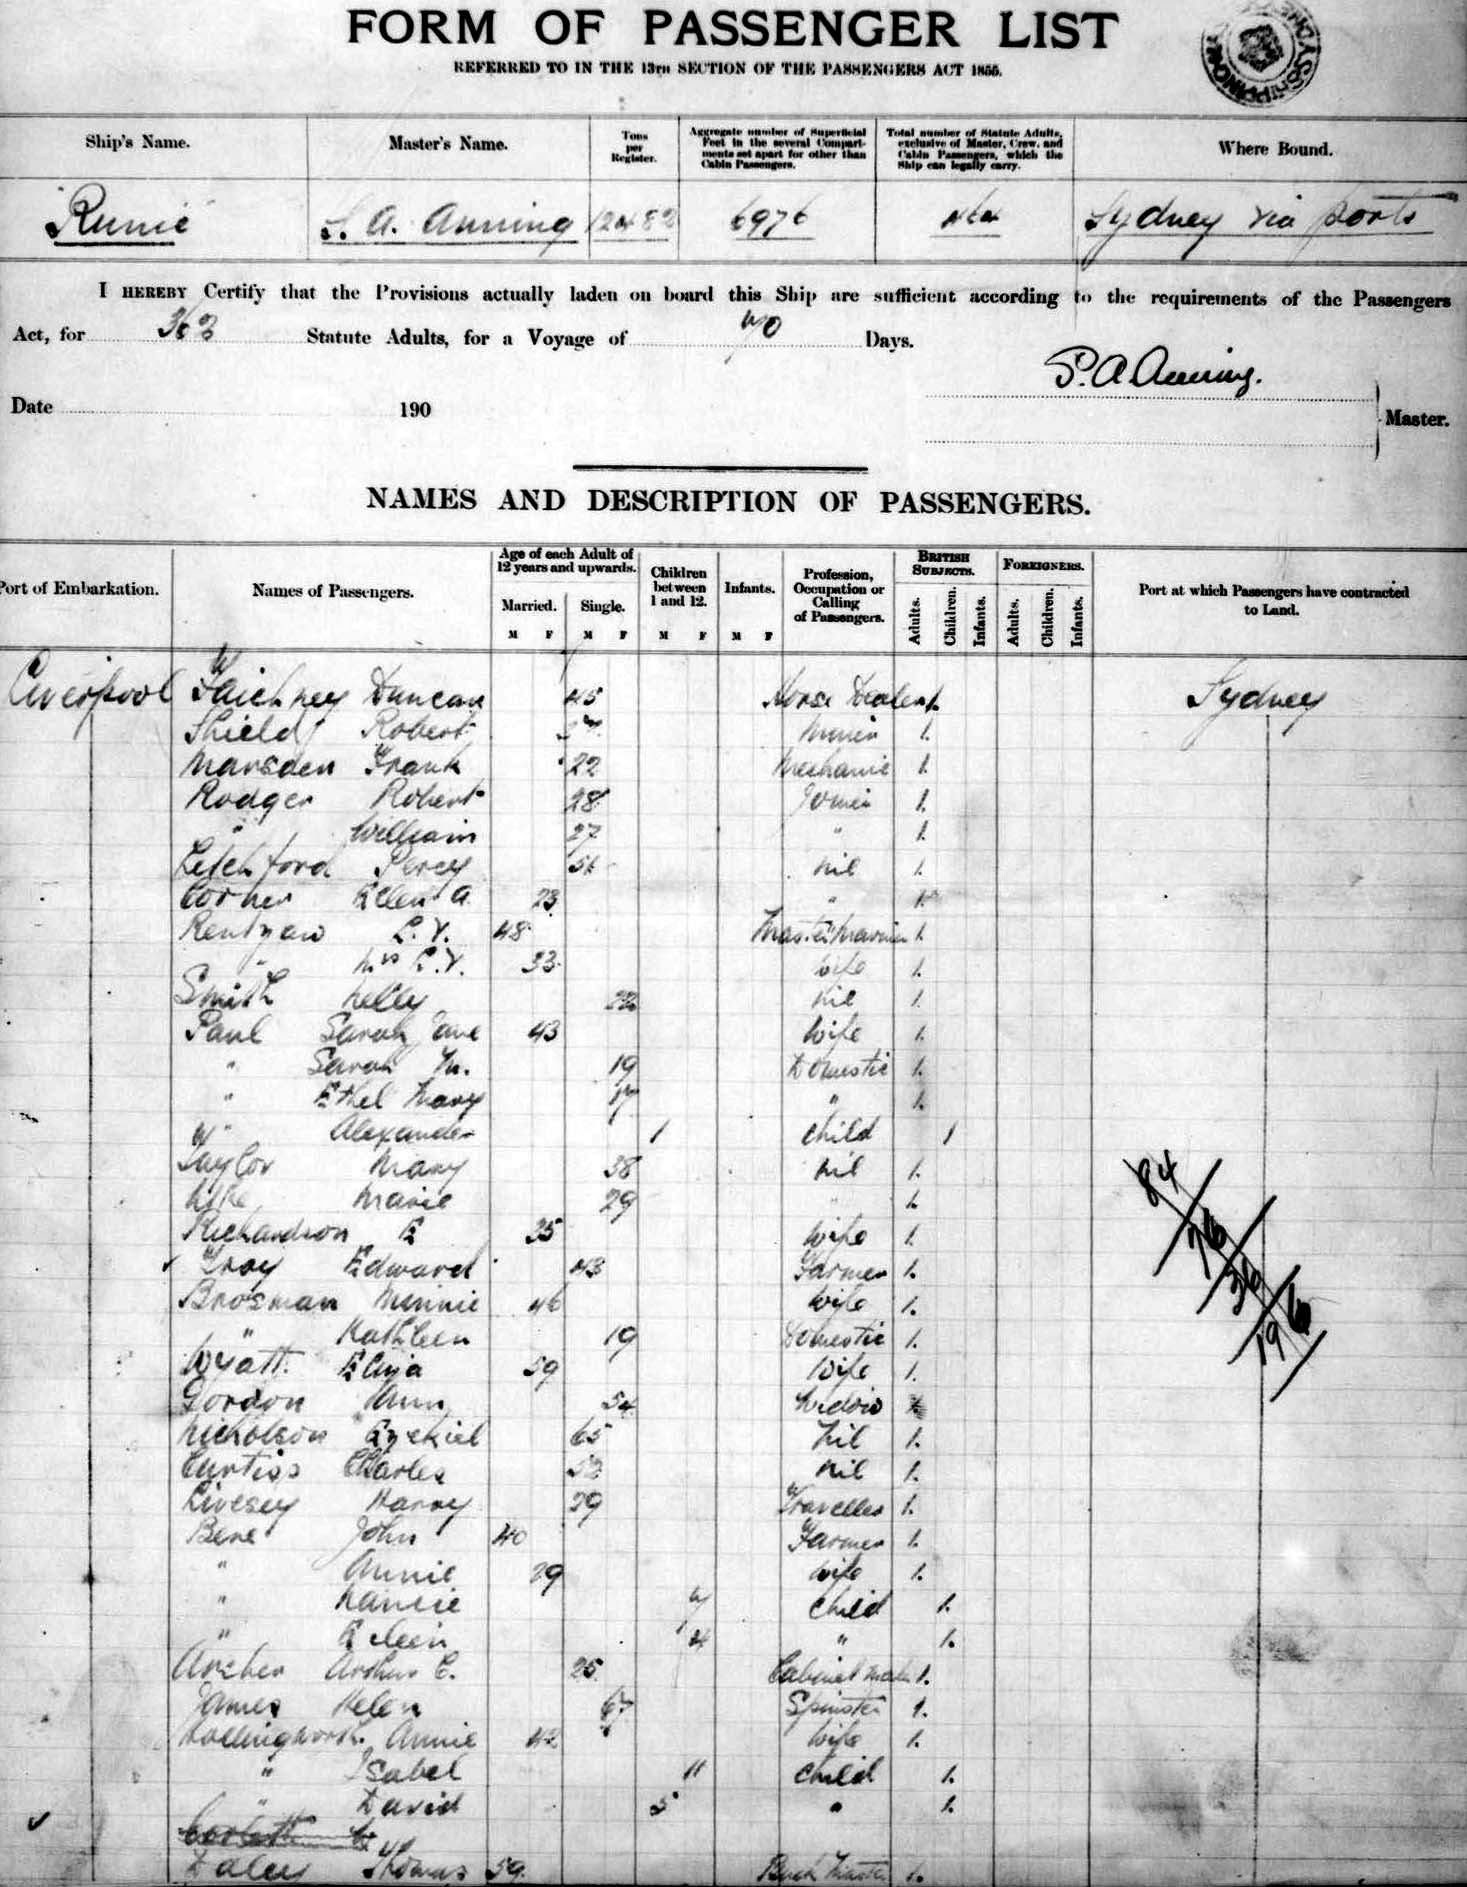 FORM OF PASSENGER LIST
REFERRED TO IN THE 13TH SECTION OF THE PASSENGERS ACT 1855.
Ship's Name. Master's Name. Tons per Register. Aggregate number of Superficial Feet in the several Compartments set apart for other than Cabin Passengers. Total number of Statute Adults, exclusive of Master, Crew, and Cabin Passengers, which the Ship can legally carry. Where Bound.
Runic A. Anning 12482 6976 Sydney via ports
I HEREBY Certify that the Provisions actually laden on board this Ship are sufficient according to the requirements of the Passengers
Act, for 363 Statute Adults, for a Voyage of 70 Days.
A. Anning.
Date 190
Master.
NAMES AND DESCRIPTION OF PASSENGERS.
Port of Embarkation. Names of Passengers. Age of each Adult of 12 years and upwards. Married. M F Single. M F Children between 1 and 12. M F Infants. M F Profession, Occupation or Calling of Passengers. BRITISH SUBJECTS. Adults. Children. Infants. FOREIGNERS. Adults. Children. Infants. Port at which Passengers have contracted to Land.
Liverpool Taichney Duncan 45 Horse Dealer 1. Sydney
Shield Robert 1.
Marsden Frank 22 Mechanic 1.
Rodger Robert 28 Joiner 1.
" William 27 " 1.
Percy nil 1.
Corner Ellen A. 23 " 1.
48 Master Mariner 1.
" Mrs 33 wife 1.
Smith Nelly nil 1.
Paul Sarah Jane 43 Wife 1.
" Sarah M. 19 Domestic 1.
" Ethel Mary 17 " 1.
" Alexander 1 child 1
Taylor Mary 38 nil 1.
Marie 29 " 1.
Richardson E 35 Wife 1.
Gray Edward 43 Farmer 1.
Brosman Minnie 46 Wife 1.
" Kathleen 19 Domestic 1.
Wyatt. Eliza 59 Wife 1.
Gordon Ann 54 Widow
Nicholson Ezekiel 65 Nil 1.
Curtiss Charles 52 nil 1.
Livesey Harry 29 Traveller 1.
Bere John 40 Farmer 1.
" Annie 29 wife 1.
" Nancie 7 child 1.
" Eileen 4 " 1.
Archer Arthur C. 25 Cabinet Maker 1.
James Helen 67 Spinster 1.
Hollingworth. Annie 42 Wife 1.
" Isabel 11 child 1.
" David 5 " 1.
Daley Thomas 59 1.
84
76
36
196